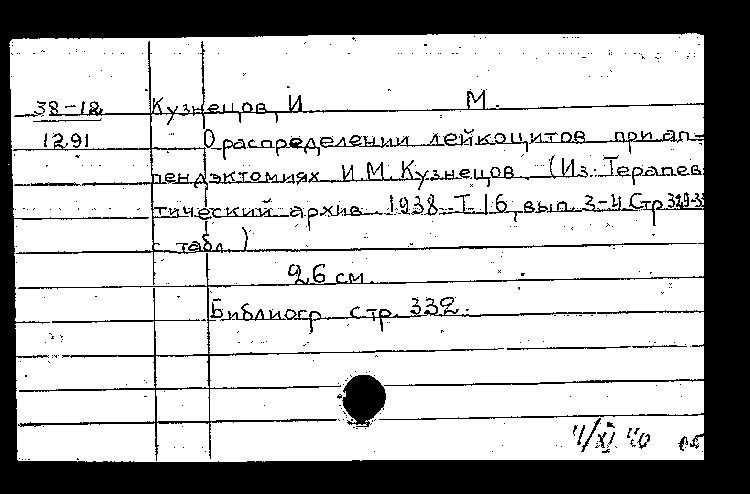 38-12 Кузнецов, И. М.
1291 О распределении лейкоцитов при ап-
пендэктомиях И.М. Кузнецов (Из: Терапев
тический архив 1938 Т 16, вып. 3-4 Стр
с табл.)
26 см.
Библиогр стр. 332.
4/XI 40